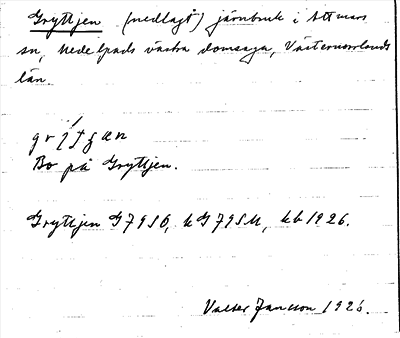 Gryttjen (nedlagt) järnbruk i Attmars
sn, Medelpads västra domsaga, Västernorrlands
län.
Bo på Gryttjen.
Gryttjen G79SÖ, kG79SU, kb 1926.
Valter Jansson 1926.